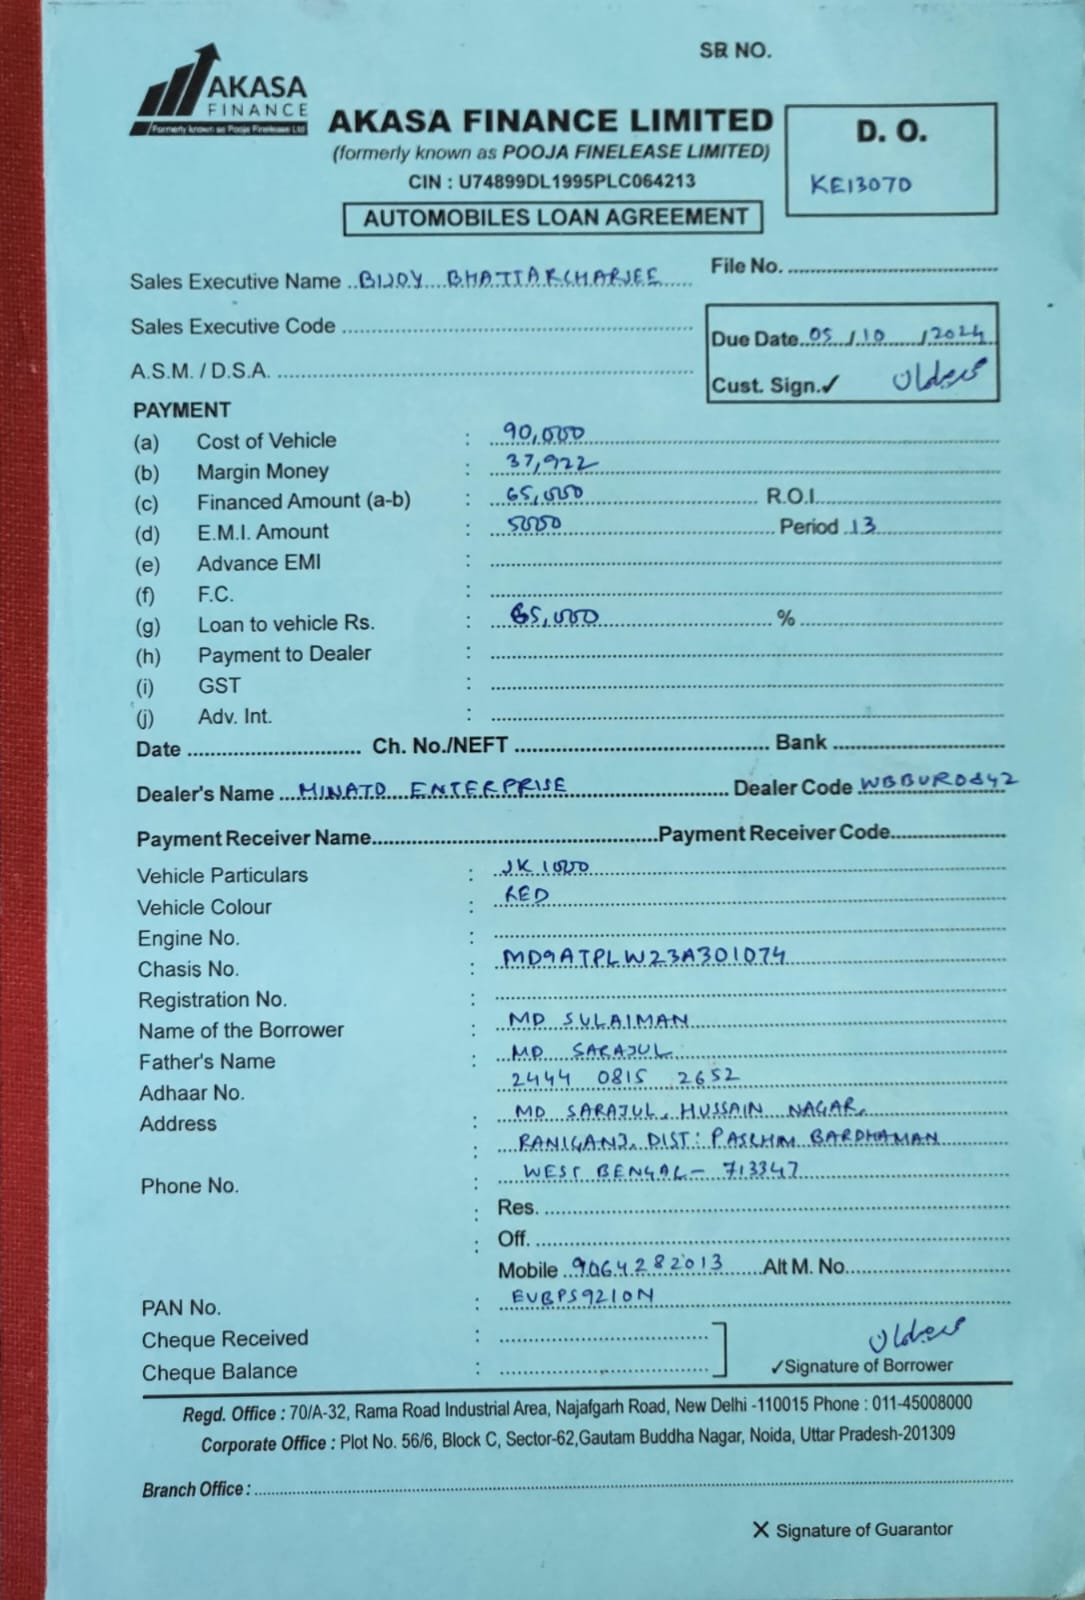 SR NO.
AKASA
FINANCE
Formerly known as Pooja Finelease Ltd
AKASA FINANCE LIMITED
(formerly known as POOJA FINELEASE LIMITED)
CIN : U74899DL1995PLC064213
AUTOMOBILES LOAN AGREEMENT
D. O.
KE13070
Sales Executive Name BIJOY BHATTARCHARJEE
File No.
Sales Executive Code
Due Date 05/10/2024
A.S.M. / D.S.A.
Cust. Sign.✓ محمد سلیمان
PAYMENT
(a) Cost of Vehicle : 90,000
(b) Margin Money : 37,922
(c) Financed Amount (a-b) : 65,000 R.O.I.
(d) E.M.I. Amount : 5000 Period 13
(e) Advance EMI :
(f) F.C. :
(g) Loan to vehicle Rs. : 65,000 %
(h) Payment to Dealer :
(i) GST :
(j) Adv. Int. :
Date Ch. No./NEFT Bank
Dealer's Name MINATO ENTERPRISE Dealer Code WBBUR0842
Payment Receiver Name Payment Receiver Code
Vehicle Particulars : JK 1000
Vehicle Colour : RED
Engine No. :
Chasis No. : MD9ATPLW23A301074
Registration No. :
Name of the Borrower : MD SULAIMAN
Father's Name : MD SARAJUL
Adhaar No. 2444 0815 2652
Address : MD SARAJUL, HUSSAIN NAGAR,
: RANIGANJ, DIST: PASCHIM BARDHAMAN
WEST BENGAL - 713347
Phone No. :
: Res.
: Off.
Mobile 9064282013 Alt M. No.
PAN No. : EVBPS9210N
Cheque Received :
محمد سلیمان
Cheque Balance :
✓Signature of Borrower
Regd. Office : 70/A-32, Rama Road Industrial Area, Najafgarh Road, New Delhi -110015 Phone : 011-45008000
Corporate Office : Plot No. 56/6, Block C, Sector-62,Gautam Buddha Nagar, Noida, Uttar Pradesh-201309
Branch Office :
X Signature of Guarantor